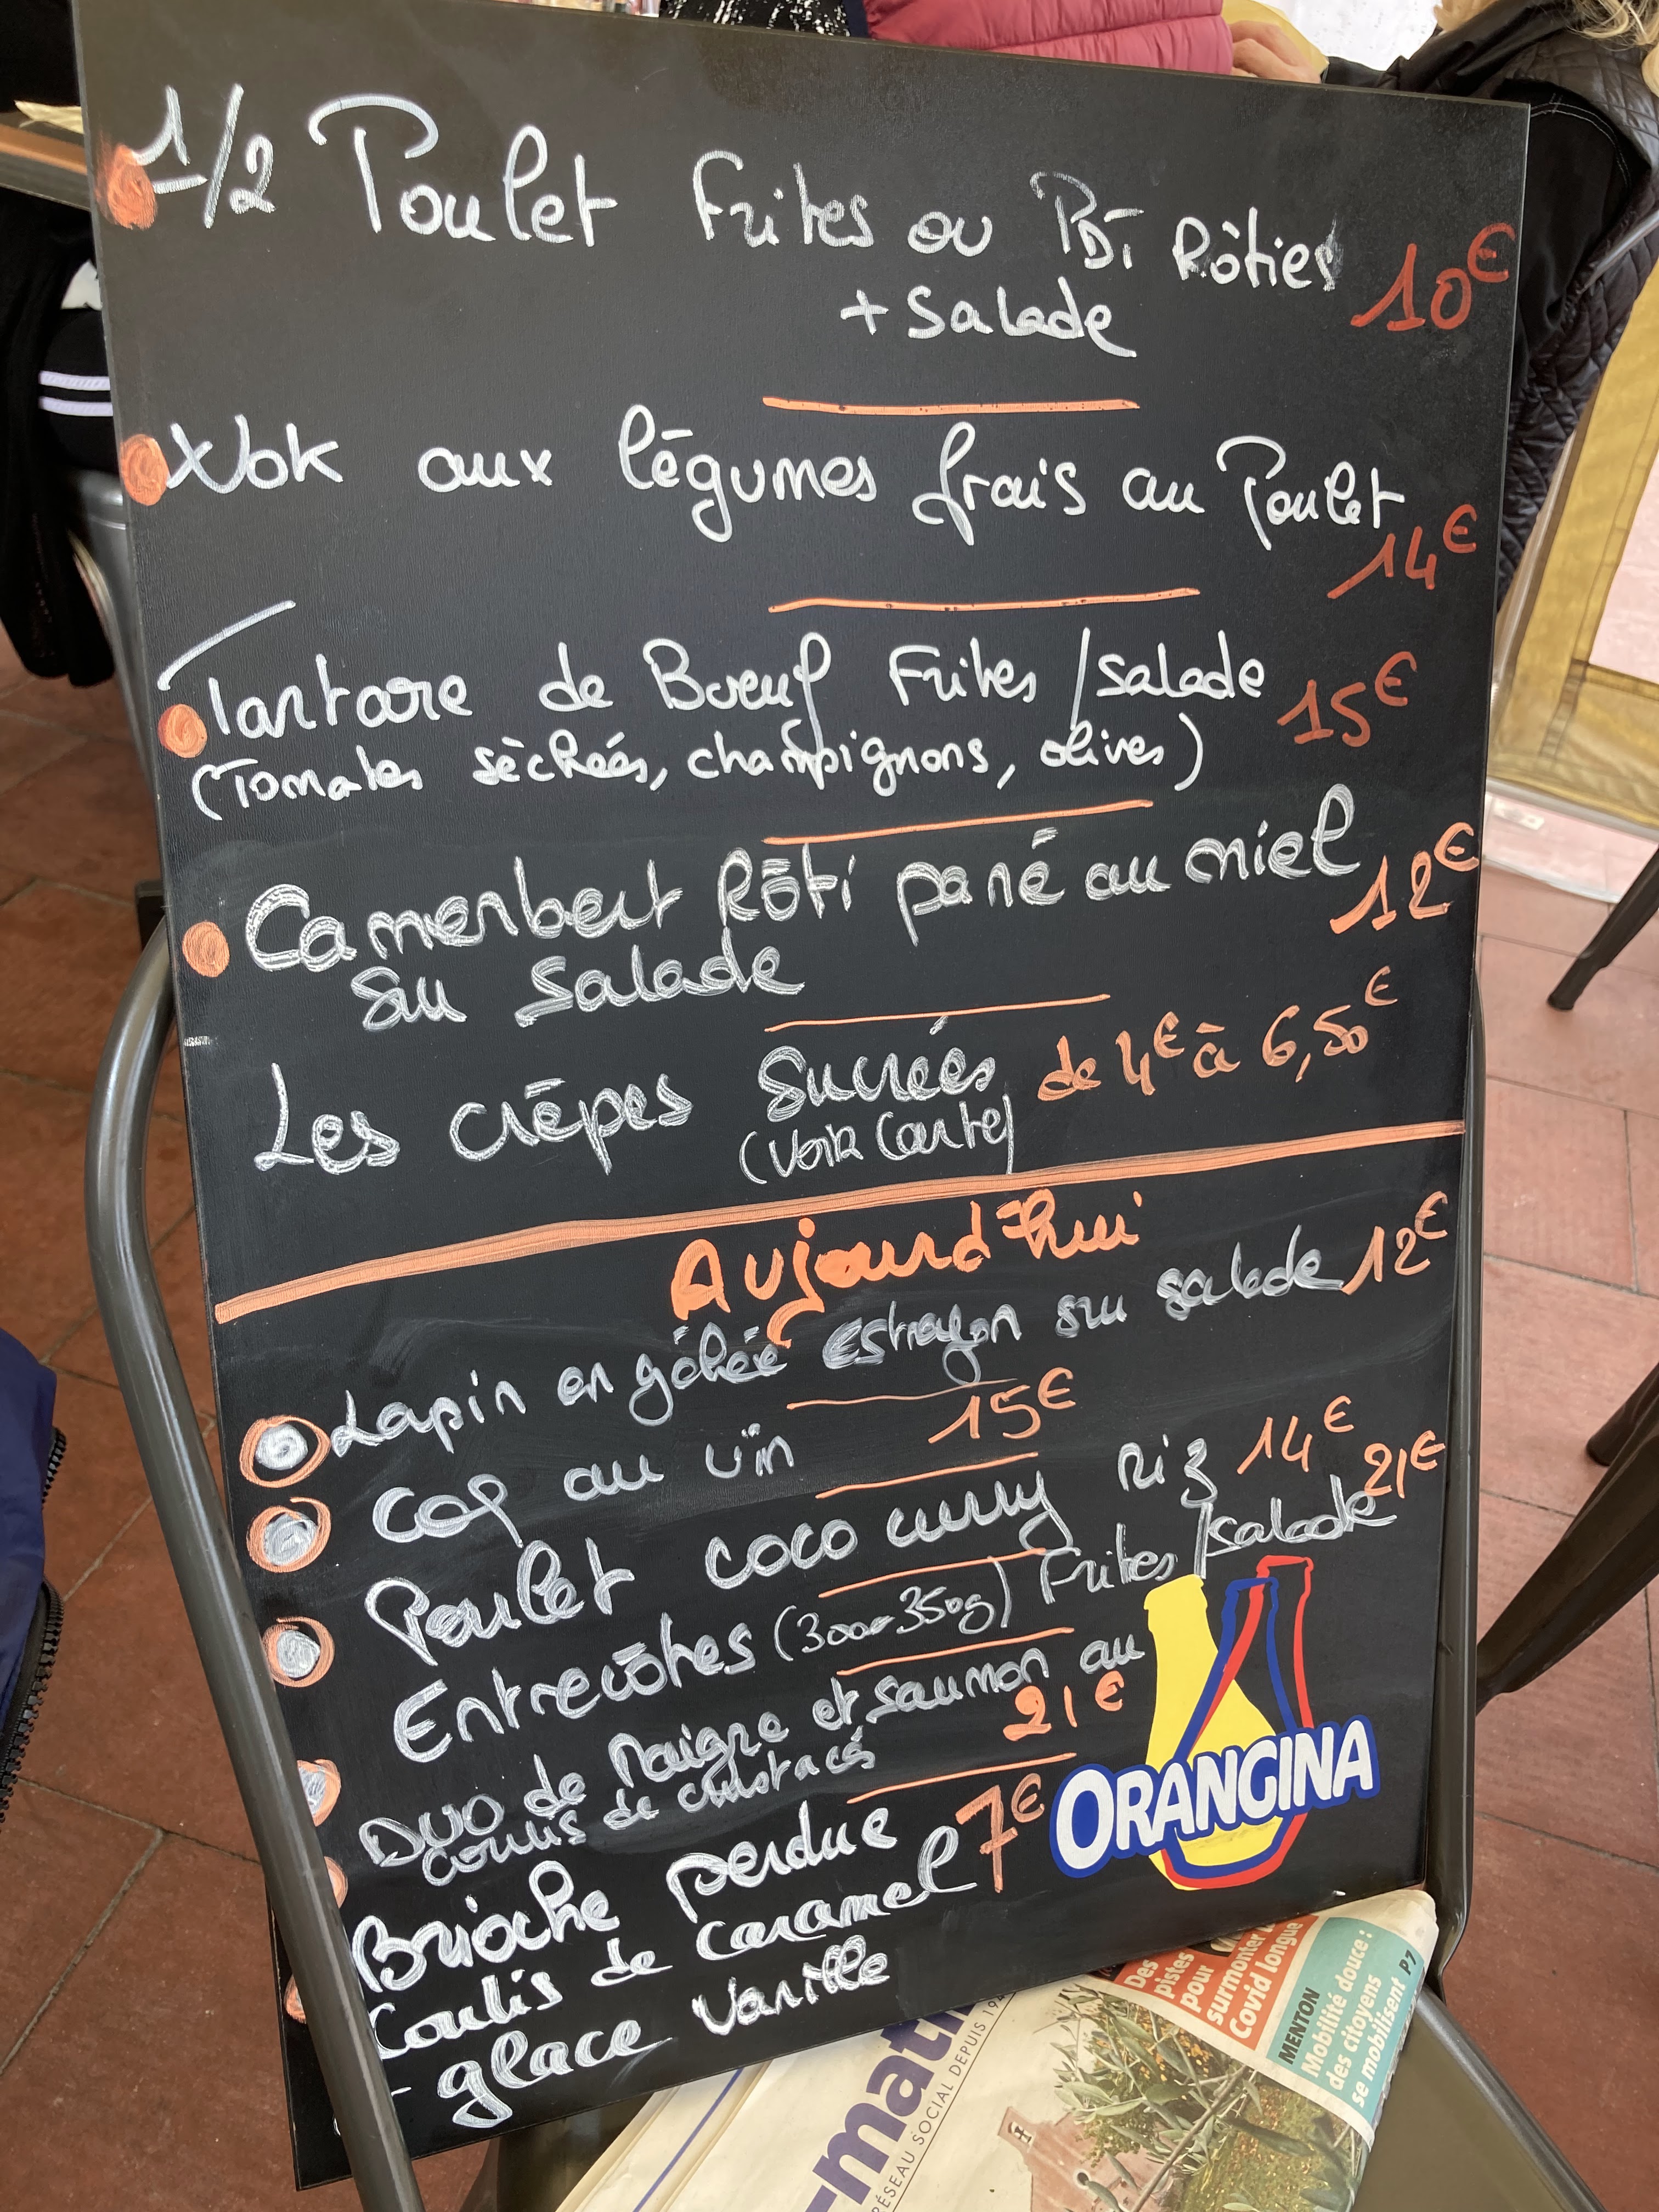 1/2 Poulet Frites ou PDT Rôties 10€
+ Salade
Wok aux légumes frais au Poulet
14€
Tartare de Boeuf Frites / salade 15€
(Tomates sèchées, champignons, olives)
Camenbert Rôti pané au miel 12€
sur salade
Les crêpes Sucrées de 4€ à 6,50€
(voir Carte)
Aujourd'hui
Lapin en gélée Estragon sur salade 12€
Coq au vin 15€
Poulet coco curry riz 14€
Entrecôtes (300-350g) Frites / salade 21€
Duo de Maigre et saumon au
coulis de crustacés 21€
Brioche perdue
Coulis de caramel 7€
- glace vanille
ORANGINA
Des
pistes
pour
surmonter
Covid longue
MENTON
Mobilité douce :
des citoyens
se mobilisent P7
-mati
RÉSEAU SOCIAL DEPUIS 194